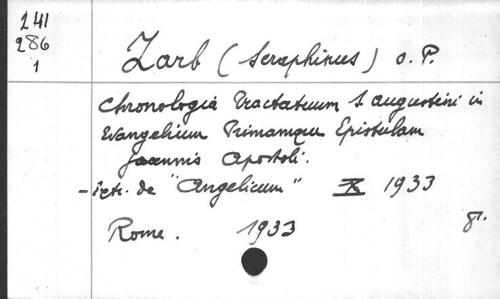 241
286
1
Zarb (Seraphinus) o. P.
Chronologia Tractatuum S. Augustini in
Evangelium Primamque Epistulam
Joannis Apostoli.
- Extr. de "Angelicum" X 1933
Rome. 1933 8°.